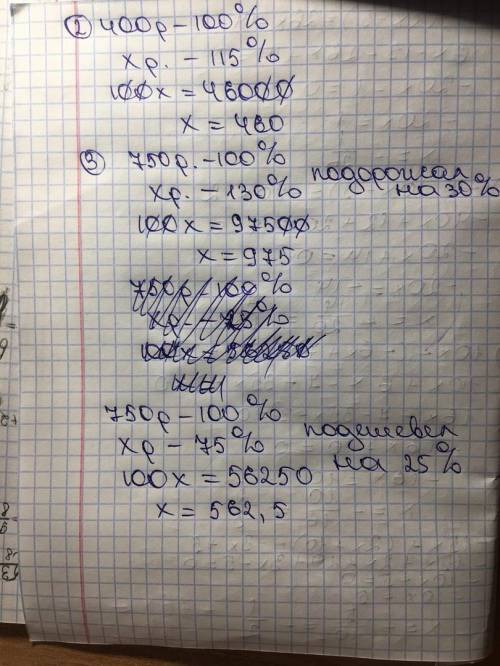 ② 400р – 100%
xр. – 115%
100x = 46000
x = 460
③ 750р. – 100%
xр. – 130% подорожал на 30%
100x = 97500
x = 975
750р – 100%
xр – 75%
750р – 100%
xр – 75% подешевел
100x = 56250 на 25%
x = 562,5